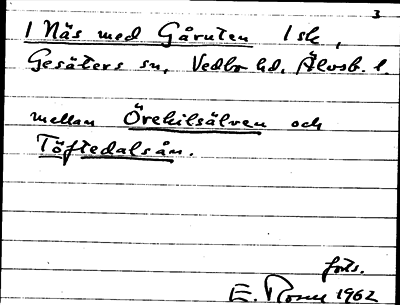 3
1 Näs med Gåruten 1 sk,
Gesäters sn, Vedbo hd, Älvsb. l.
mellan Örekilsälven och
Töftedalsån.
forts.
E. 1962